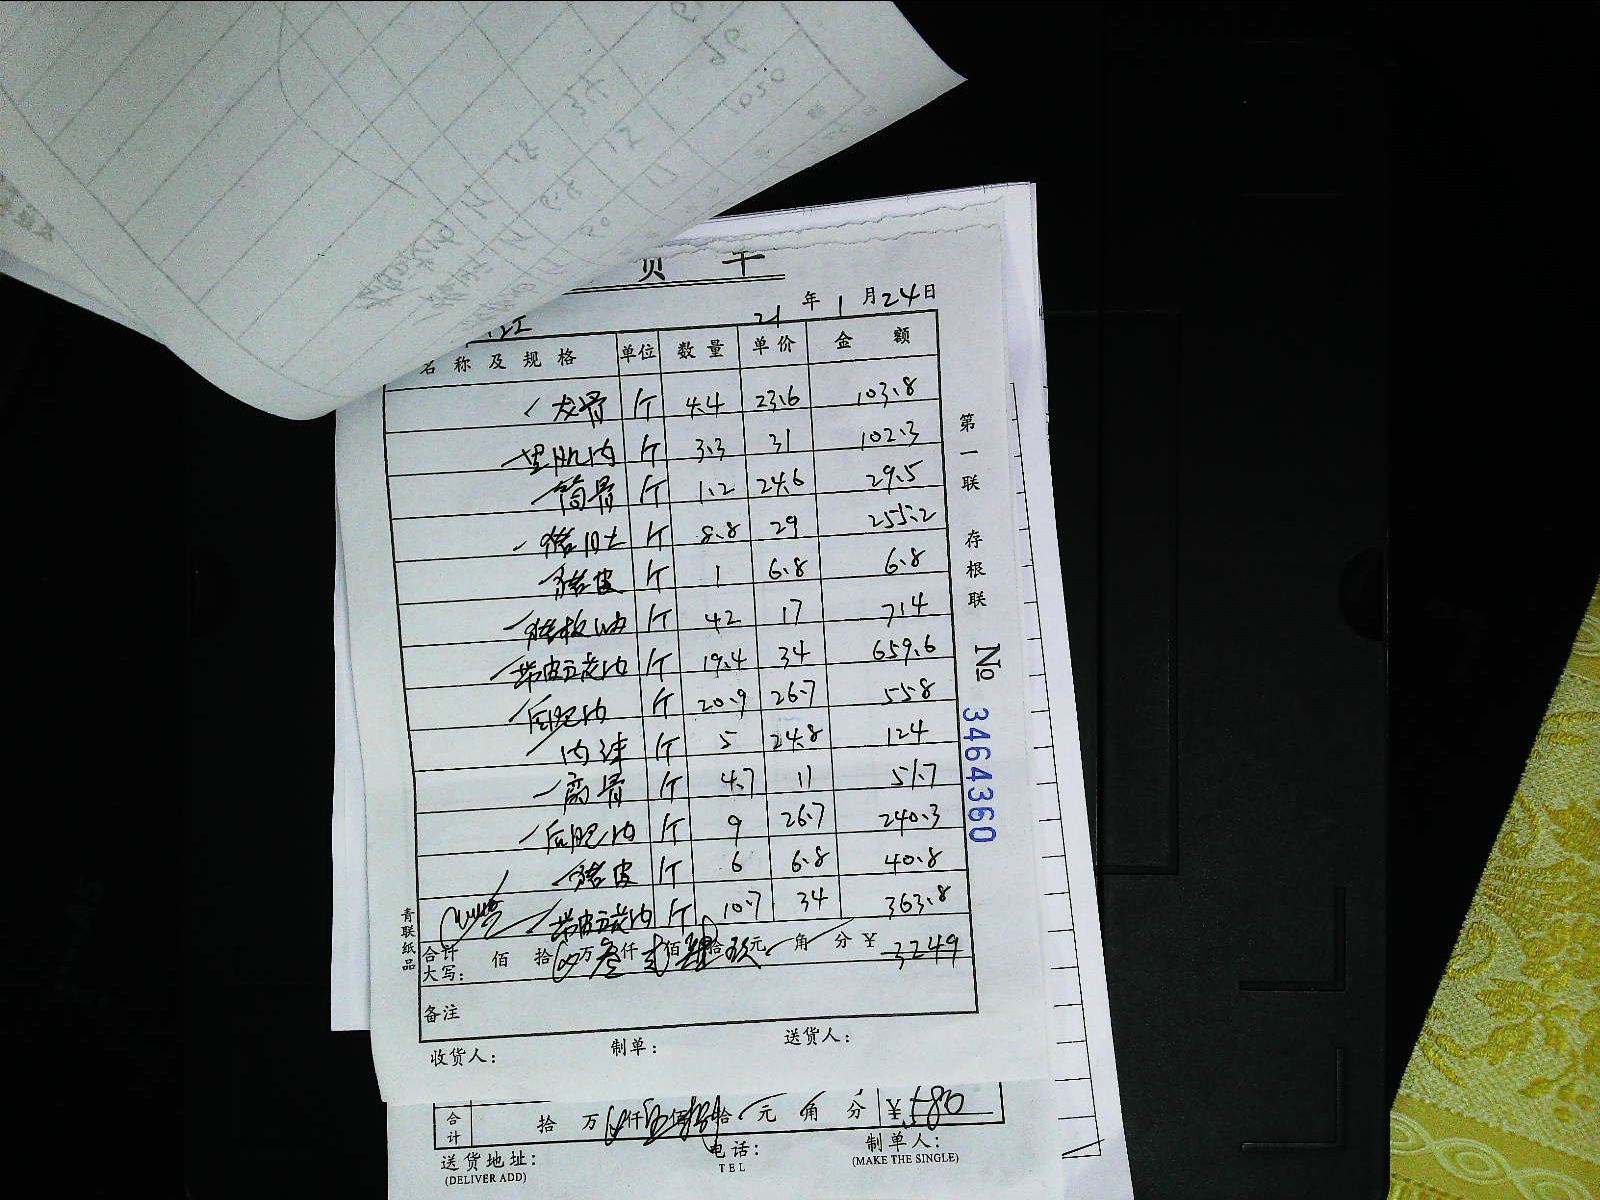 货 单
21 年 1 月 24 日
名 称 及 规 格 单位 数 量 单 价 金 额
龙骨 斤 4.4 23.6 103.8
里肌肉 斤 3.3 31 102.3
筒骨 斤 1.2 24.6 29.5
猪肚 斤 8.8 29 255.2
猪皮 斤 1 6.8 6.8
猪板油 斤 42 17 714
带皮五花肉 斤 19.4 34 659.6
后腿肉 斤 20.9 26.7 558
肉沫 斤 5 24.8 124
扇骨 斤 4.7 11 51.7
后腿肉 斤 9 26.7 240.3
猪皮 斤 6 6.8 40.8
带皮五花肉 斤 10.7 34 363.8
合计
大写: 佰 拾 万 叁 仟 贰 佰 肆 拾 玖 元 角 分 ¥ 3249
备注
收货人: 制单: 送货人:
第一联 存根联
№ 3464360
青联纸品
合计 拾 万 仟 伍 佰 捌 拾 元 角 分 ¥ 580
送货地址: 电话: 制单人:
(DELIVER ADD) TEL (MAKE THE SINGLE)